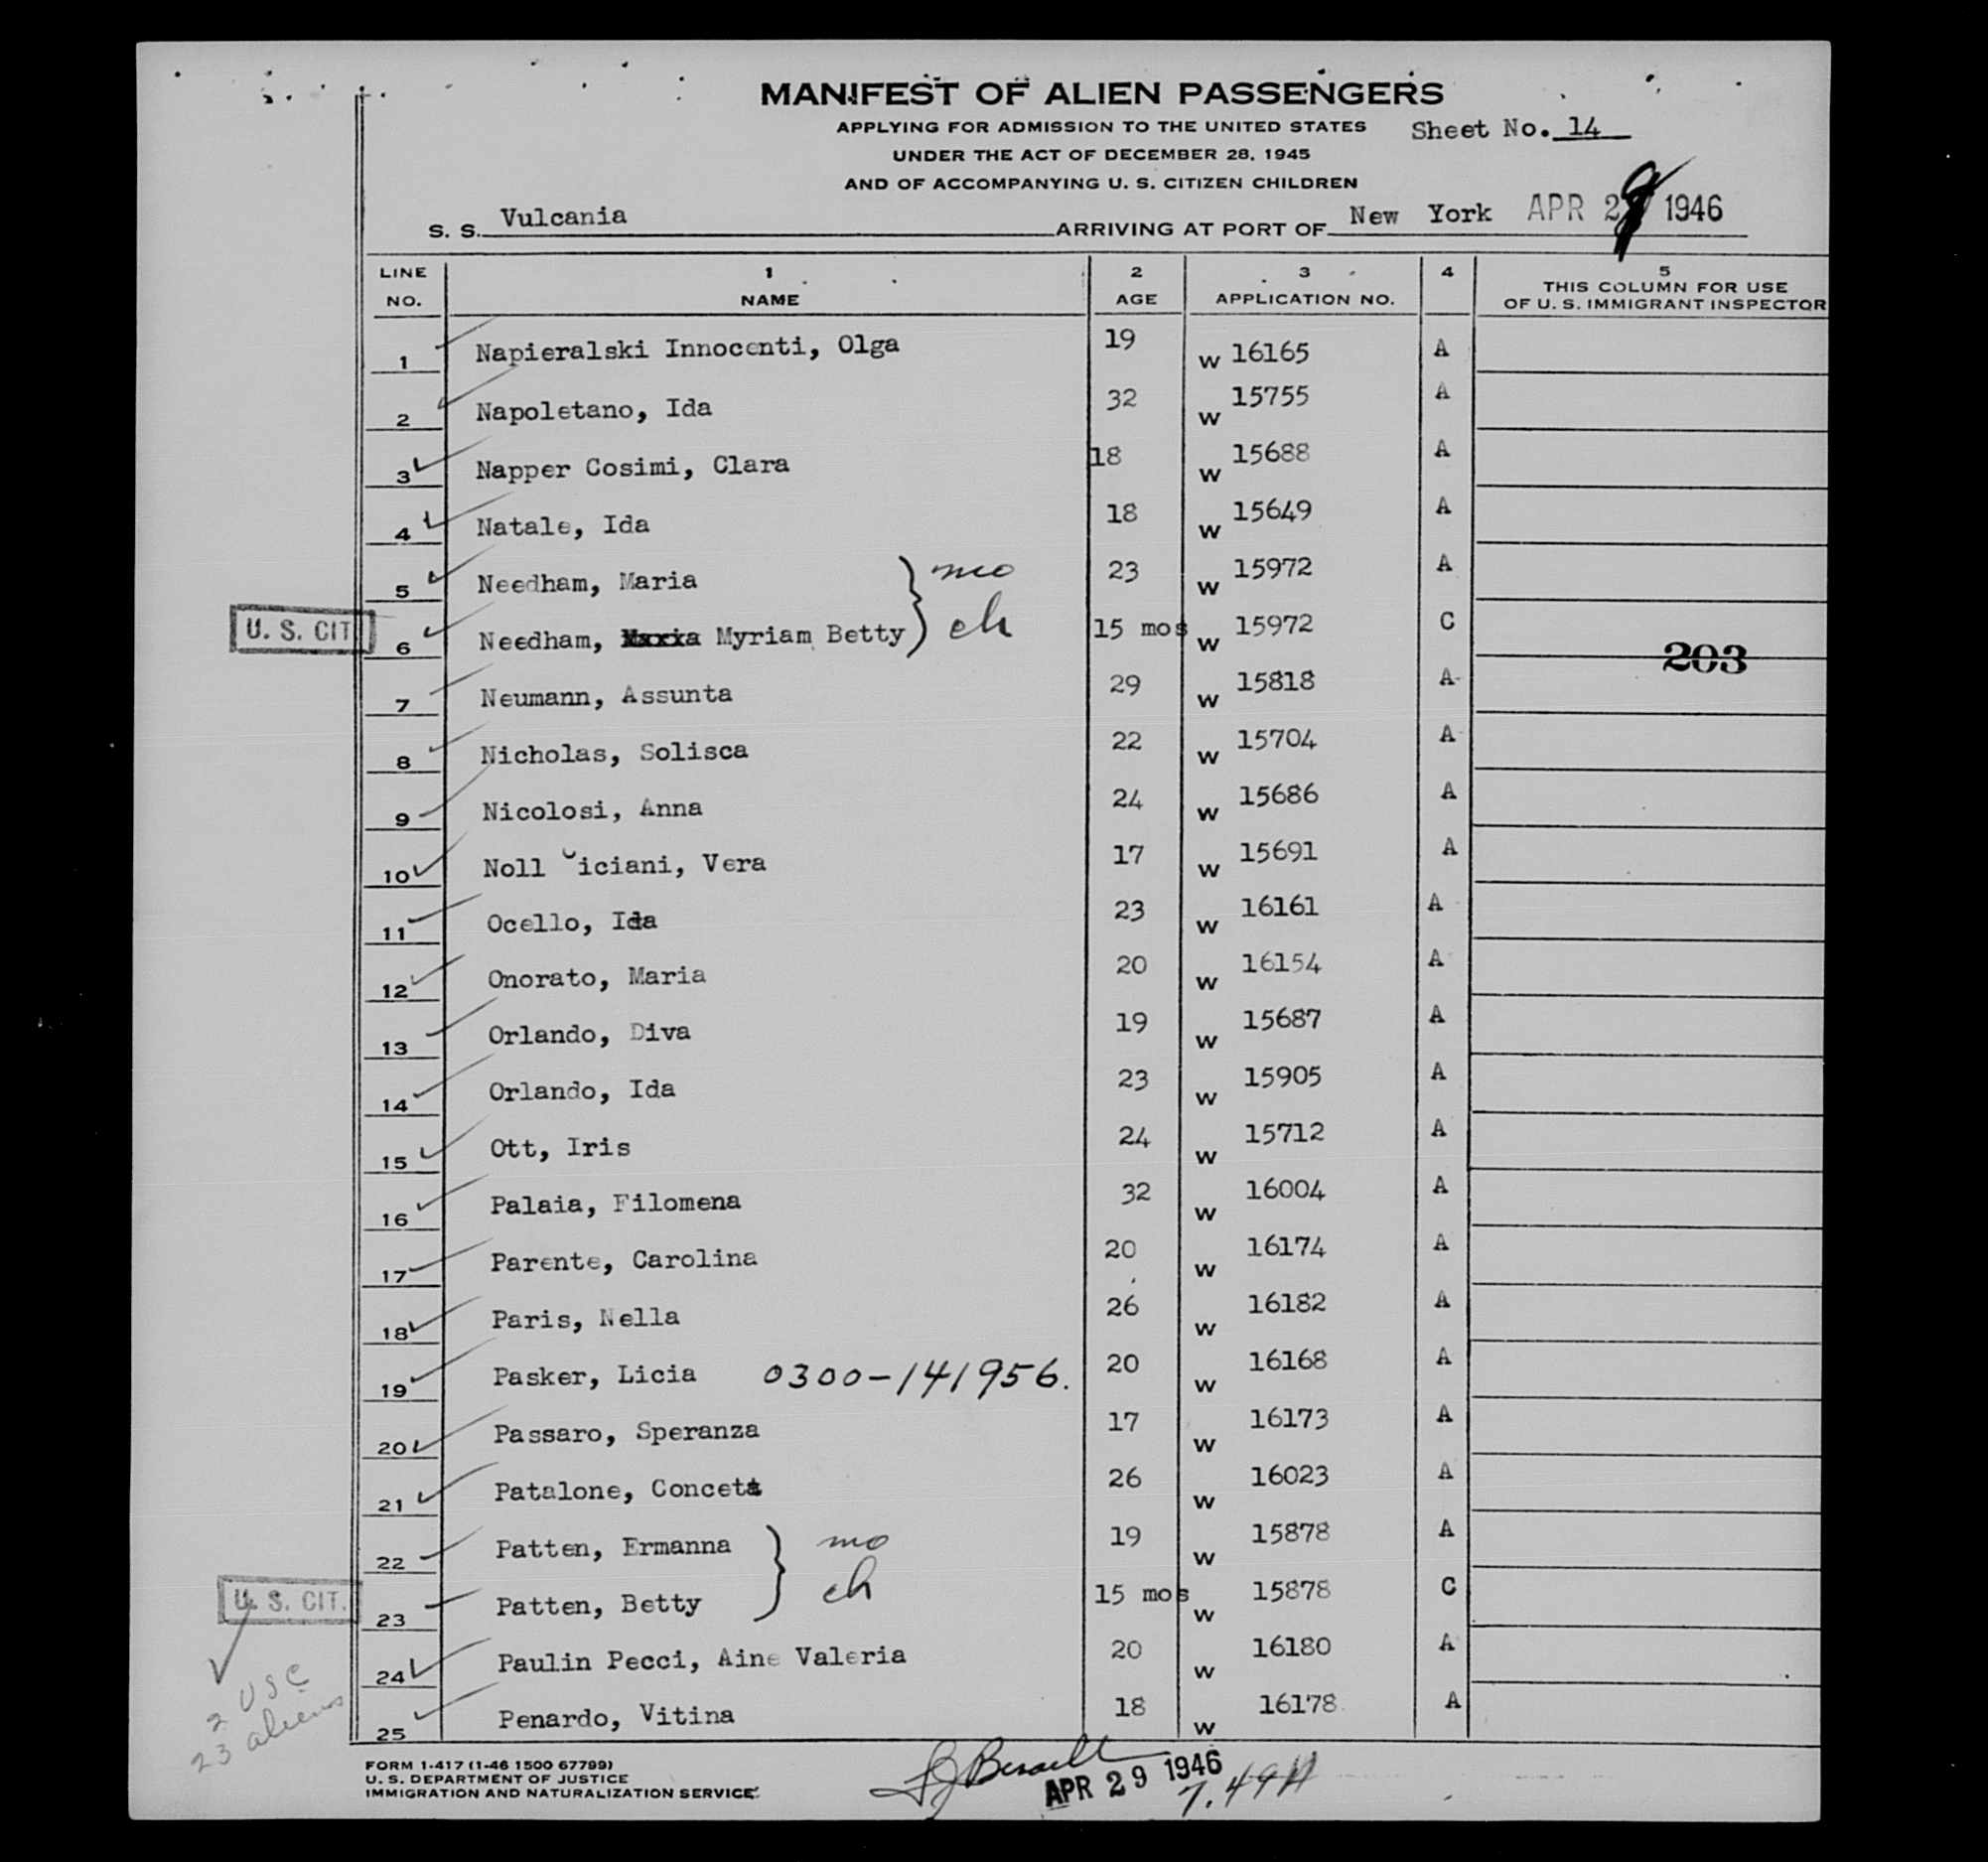 MANIFEST OF ALIEN PASSENGERS
APPLYING FOR ADMISSION TO THE UNITED STATES Sheet No. 14
UNDER THE ACT OF DECEMBER 28, 1945
AND OF ACCOMPANYING U. S. CITIZEN CHILDREN
S. S. Vulcania ARRIVING AT PORT OF New York APR 29 1946
LINE NO. 1 NAME 2 AGE 3 APPLICATION NO. 4 5 THIS COLUMN FOR USE OF U. S. IMMIGRANT INSPECTOR
1 Napieralski Innocenti, Olga 19 W 16165 A
2 Napoletano, Ida 32 W 15755 A
3 Napper Cosimi, Clara 18 W 15688 A
4 Natale, Ida 18 W 15649 A
5 Needham, Maria mo 23 W 15972 A
U. S. CIT 6 Needham, Myriam Betty ch 15 mos W 15972 C
203
7 Neumann, Assunta 29 W 15818 A
8 Nicholas, Solisca 22 W 15704 A
9 Nicolosi, Anna 24 W 15686 A
10 Noll Ciciani, Vera 17 W 15691 A
11 Ocello, Ida 23 W 16161 A
12 Onorato, Maria 20 W 16154 A
13 Orlando, Diva 19 W 15687 A
14 Orlando, Ida 23 W 15905 A
15 Ott, Iris 24 W 15712 A
16 Palaia, Filomena 32 W 16004 A
17 Parente, Carolina 20 W 16174 A
18 Paris, Nella 26 W 16182 A
19 Pasker, Licia 0300-141956. 20 W 16168 A
20 Passaro, Speranza 17 W 16173 A
21 Patalone, Conceta 26 W 16023 A
22 Patten, Ermanna mo 19 W 15878 A
U. S. CIT. 23 Patten, Betty ch 15 mos W 15878 C
24 Paulin Pecci, Aine Valeria 20 W 16180 A
25 Penardo, Vitina 18 W 16178 A
2 USC
23 aliens
FORM 1-417 (1-46 1500 67799)
U. S. DEPARTMENT OF JUSTICE
IMMIGRATION AND NATURALIZATION SERVICE
APR 29 1946